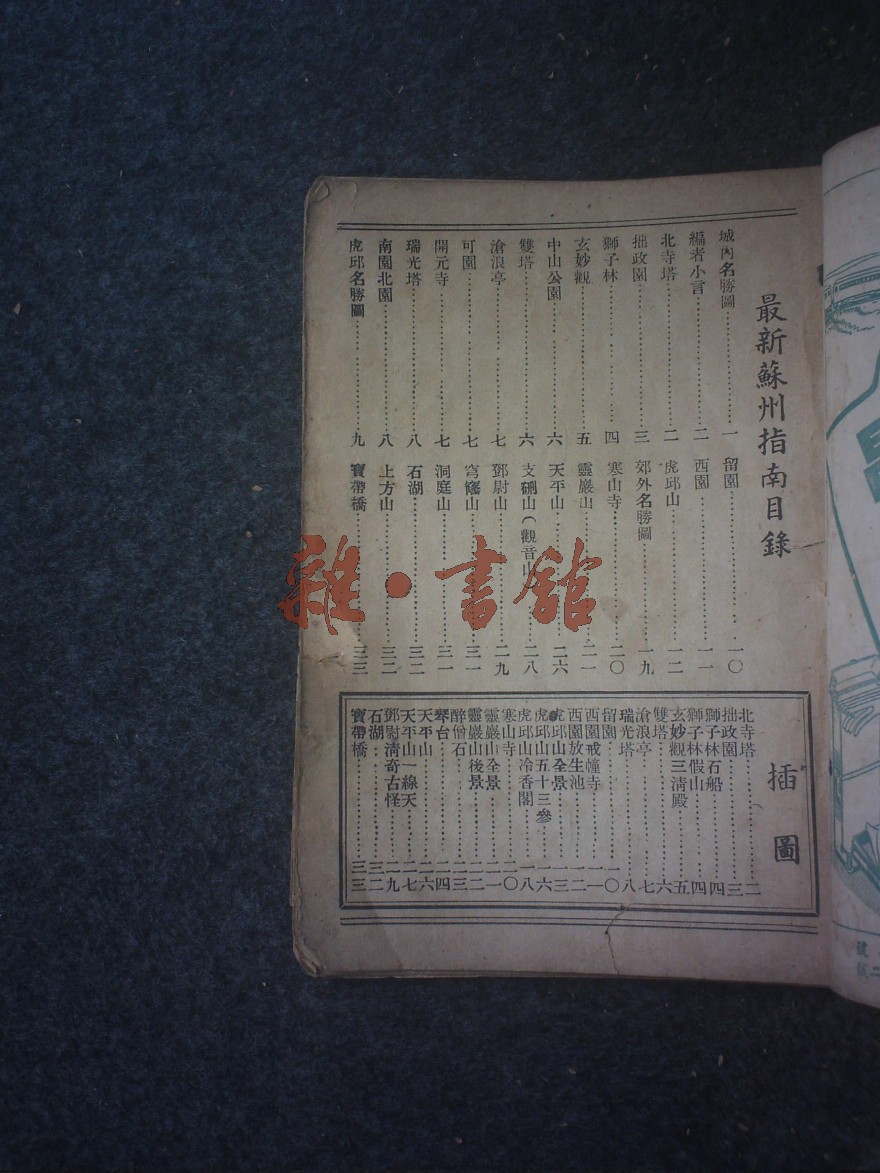 最新蘇州指南目錄
城內名勝圖………一
編者小言………二
北寺塔………二
拙政園………三
獅子林………四
玄妙觀………五
中山公園………六
雙塔………六
滄浪亭………七
可園………七
開元寺………七
瑞光塔………八
南園北園………八
虎邱名勝圖………九
留園………一〇
西園………一一
虎邱山………一二
郊外名勝圖………一九
寒山寺………二〇
靈巖山………二一
天平山………二六
支硎山(觀音山)………二八
鄧尉山………二九
穹窿山………三一
洞庭山………三一
石湖………三二
上方山………三二
寶帶橋………三三
插圖
北寺塔………二
拙政園………三
獅子林石船………四
獅子林假山………四
玄妙觀三淸殿………五
雙塔………六
滄浪亭………七
瑞光塔………八
留園………一〇
西園戒幢寺………一一
西園放生池………一二
虎邱山全景………一三
虎邱山五十三參………一六
虎邱山冷香閣………一八
寒山寺………二〇
靈巖山全景………二一
靈巖山後景………二二
醉僧石………二三
琴台………二四
天平山………二六
天平山一線天………二七
鄧尉淸奇古怪………二九
石湖………三二
寶帶橋………三三
雜·書館